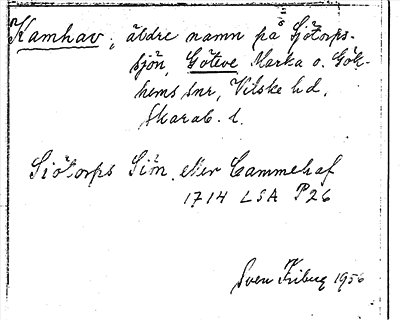 Kamhav, äldre namn på Sjötorps-
sjön, Göteve Marka o. Gök-
hems snr, Vilske hd,
Skarab. l.
Siötorps Siön eller Cammehaf
1714 LSA P26
Sven Friberg 1956